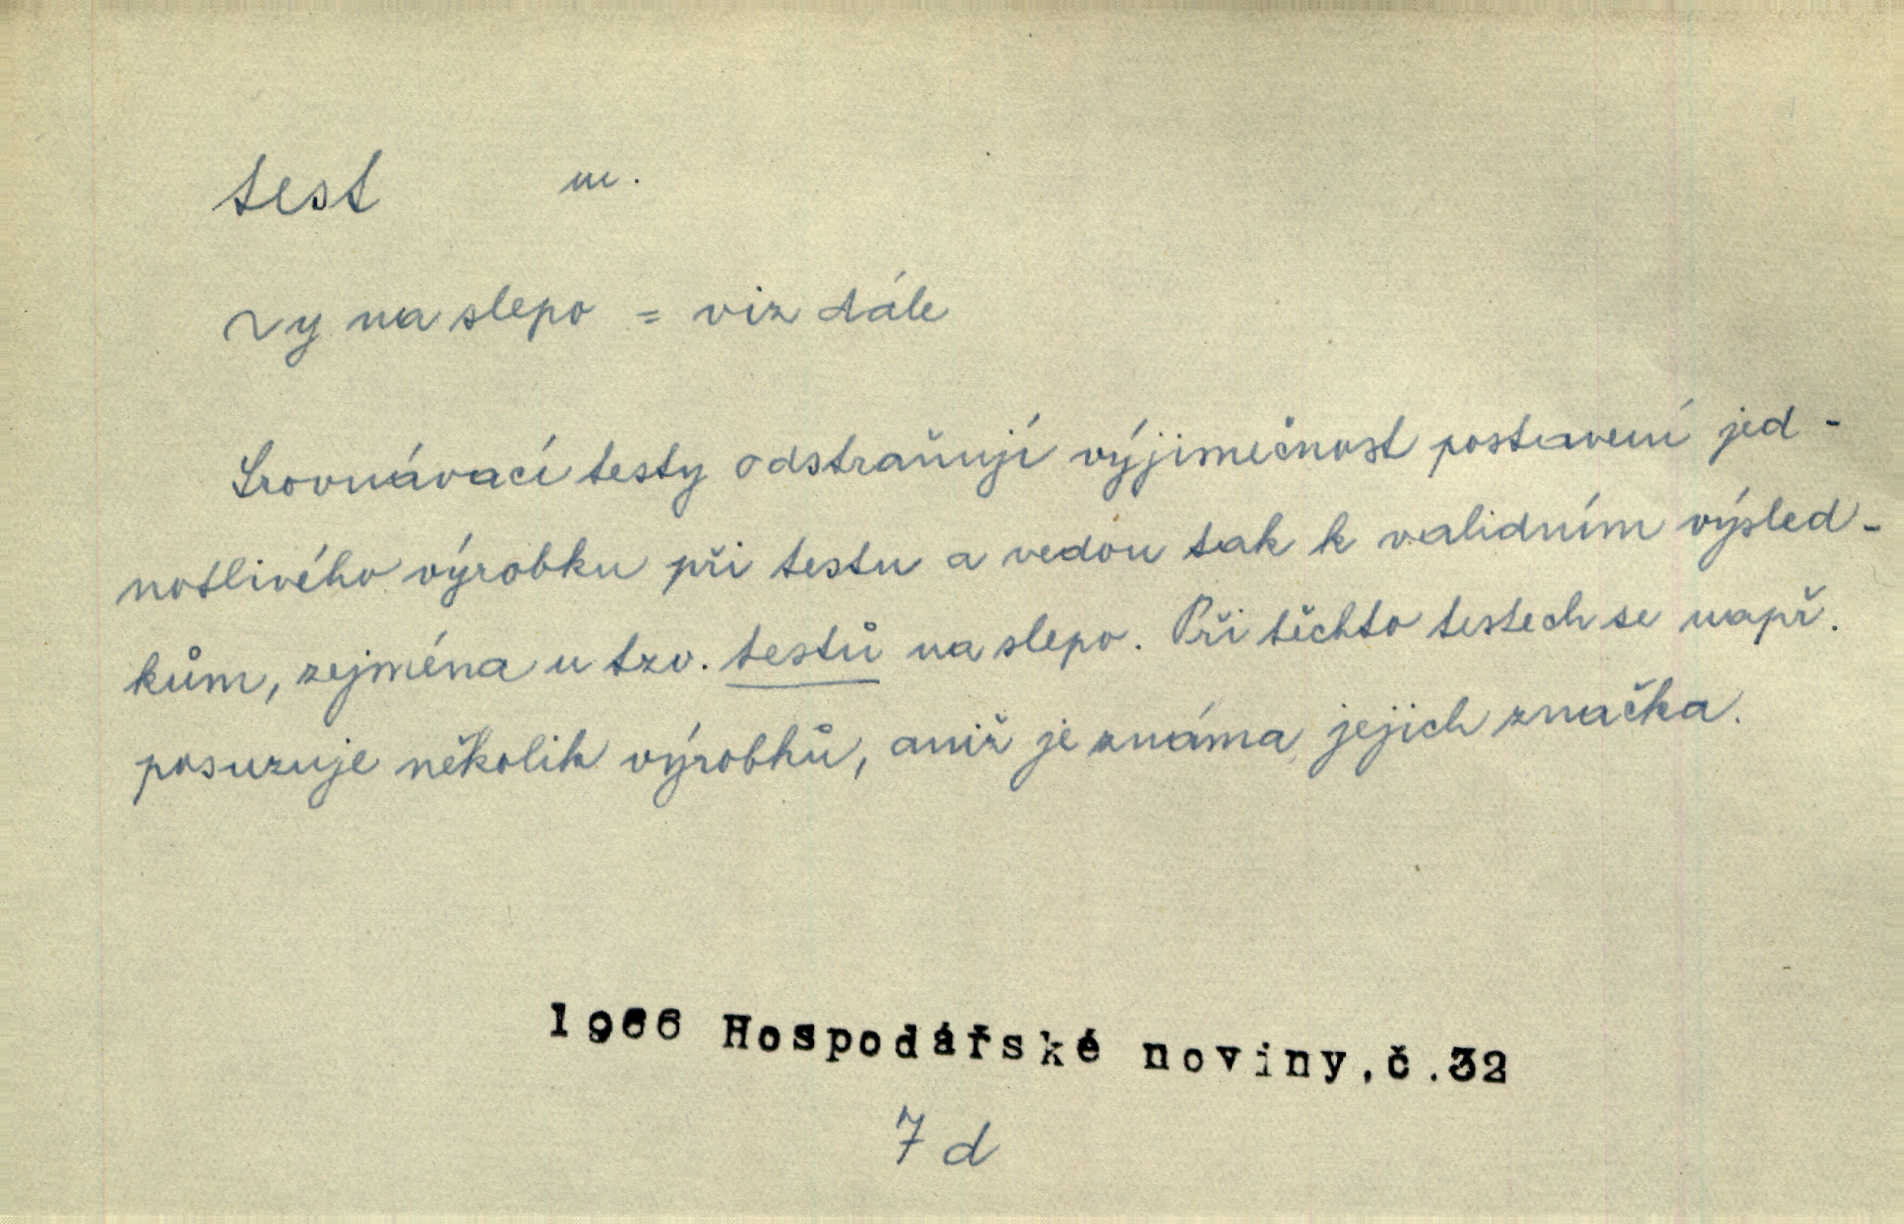 test m.
~y na slepo = viz dále
Srovnávací testy odstraňují výjimečnost postavení jed-
notlivého výrobku při testu a vedou tak k validním výsled-
kům, zejména u tzv. testů na slepo. Při těchto testech se např.
posuzuje několik výrobků, aniž je známa jejich značka.
1966 Hospodářské noviny,č.32
7 d